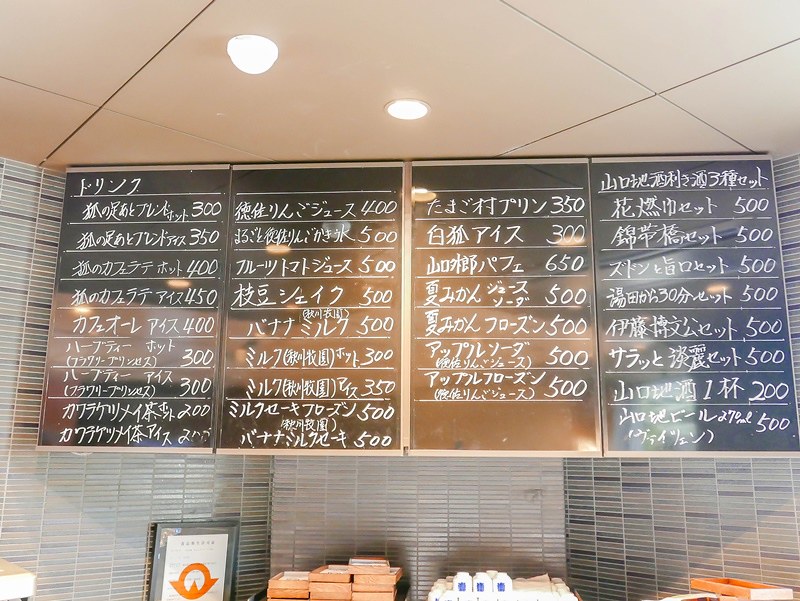 ドリンク
狐の足あとブレンド ホット 300
狐の足あとブレンド アイス 350
狐のカフェラテ ホット 400
狐のカフェラテ アイス 450
カフェオーレ アイス 400
ハーブティー ホット
(フラワリープリンセス) 300
ハーブティー アイス
(フラワリープリンセス) 300
カワラケツメイ茶 ホット 200
カワラケツメイ茶 アイス
徳佐りんごジュース 400
まるごと徳佐りんごかき氷 500
フルーツトマトジュース 500
枝豆シェイク 500
(秋川牧園)
バナナミルク 500
ミルク(秋川牧園)ホット 300
ミルク(秋川牧園)アイス 350
ミルクセーキフローズン 500
(秋川牧園)
バナナミルクセーキ 500
たまご村プリン 350
白狐アイス 300
山口郷パフェ 650
夏みかん ジュース
ソーダ 500
夏みかん フローズン 500
アップルソーダ
(徳佐りんごジュース) 500
アップルフローズン
(徳佐りんごジュース) 500
山口地酒利き酒3種セット
花燃ゆセット 500
錦帯橋セット 500
ズドンと旨口セット 500
湯田から30分セット 500
伊藤博文公セット 500
サラッと淡麗セット 500
山口地酒1杯 200
山口地ビール 270ml
(ヴァイツェン) 500